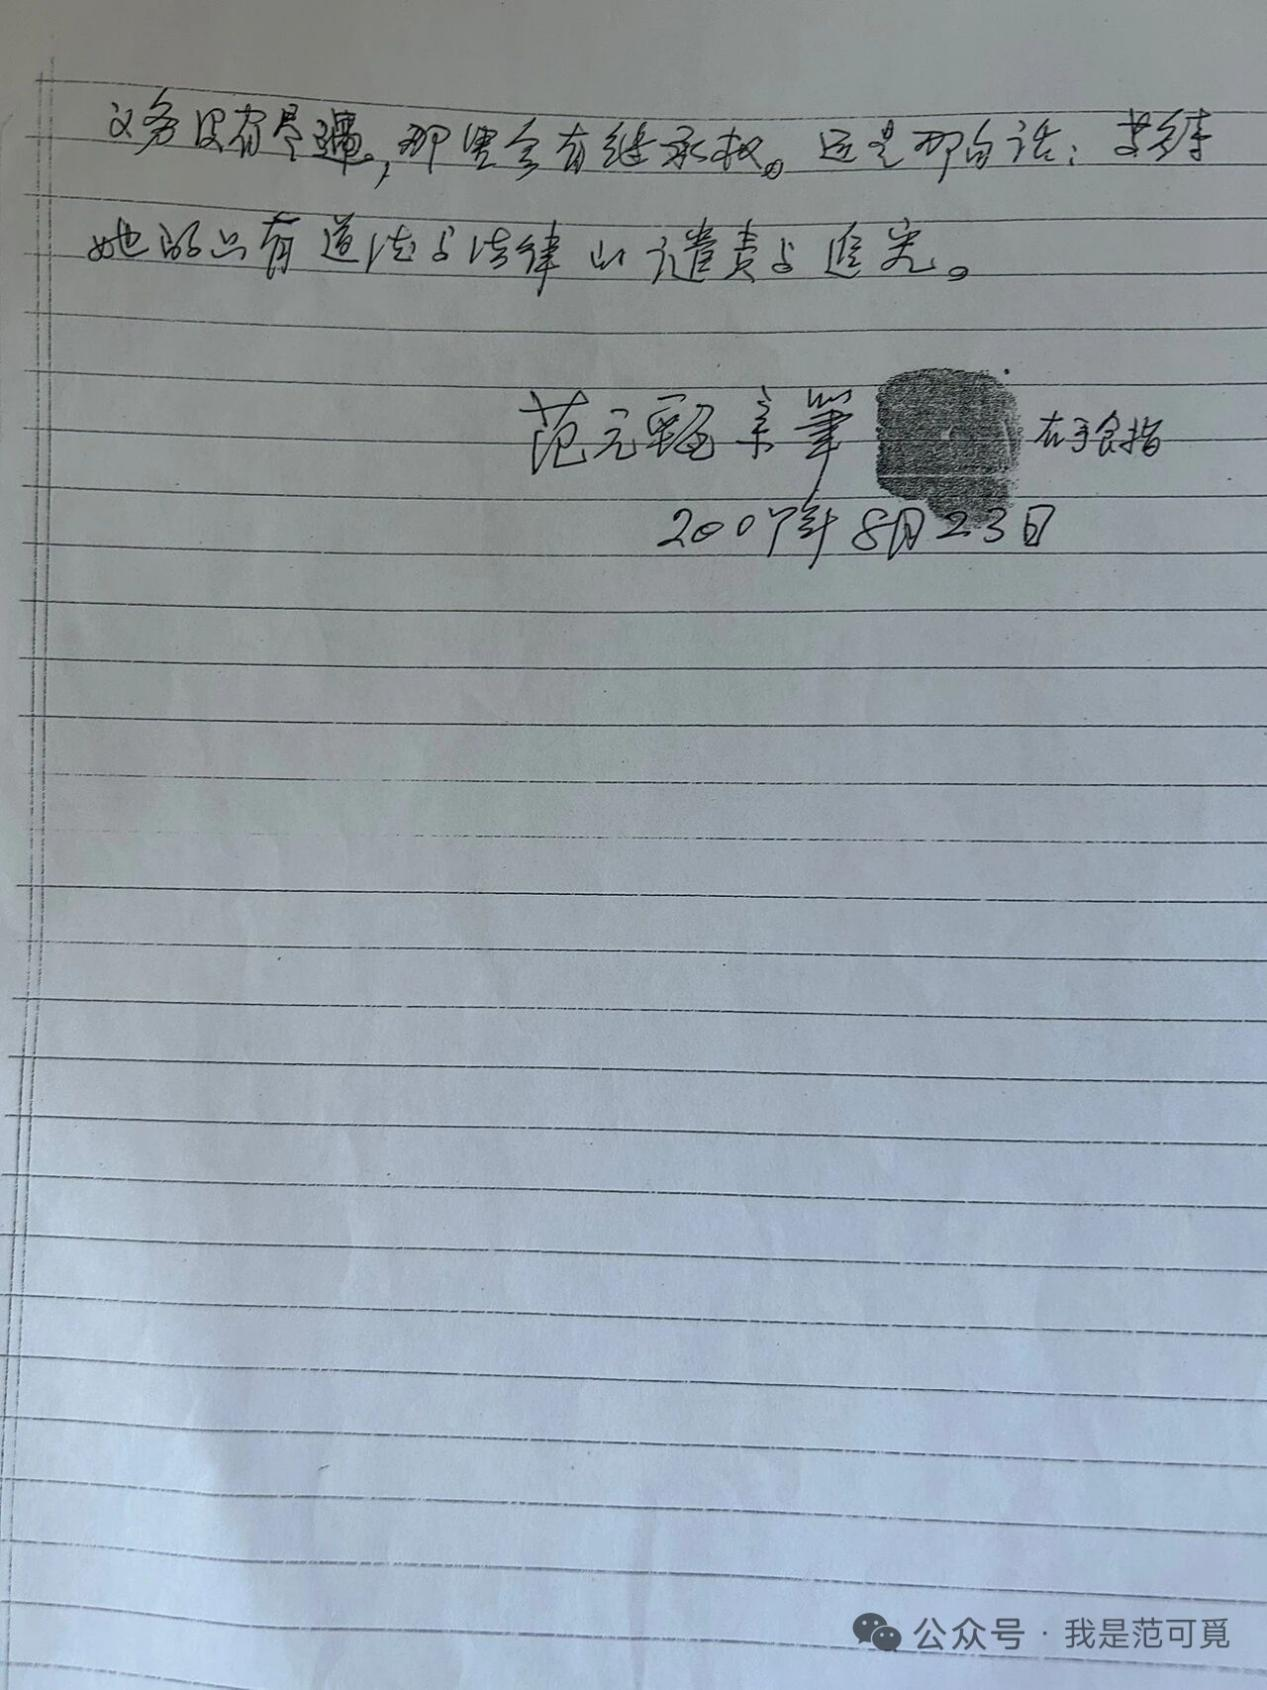 义务没有尽遍,那里会有继承权。还是那句话:等待
她的只有道法与法律的谴责与追究。
范元甄亲笔 右手食指
2007年8月23日
公众号·我是范可觅